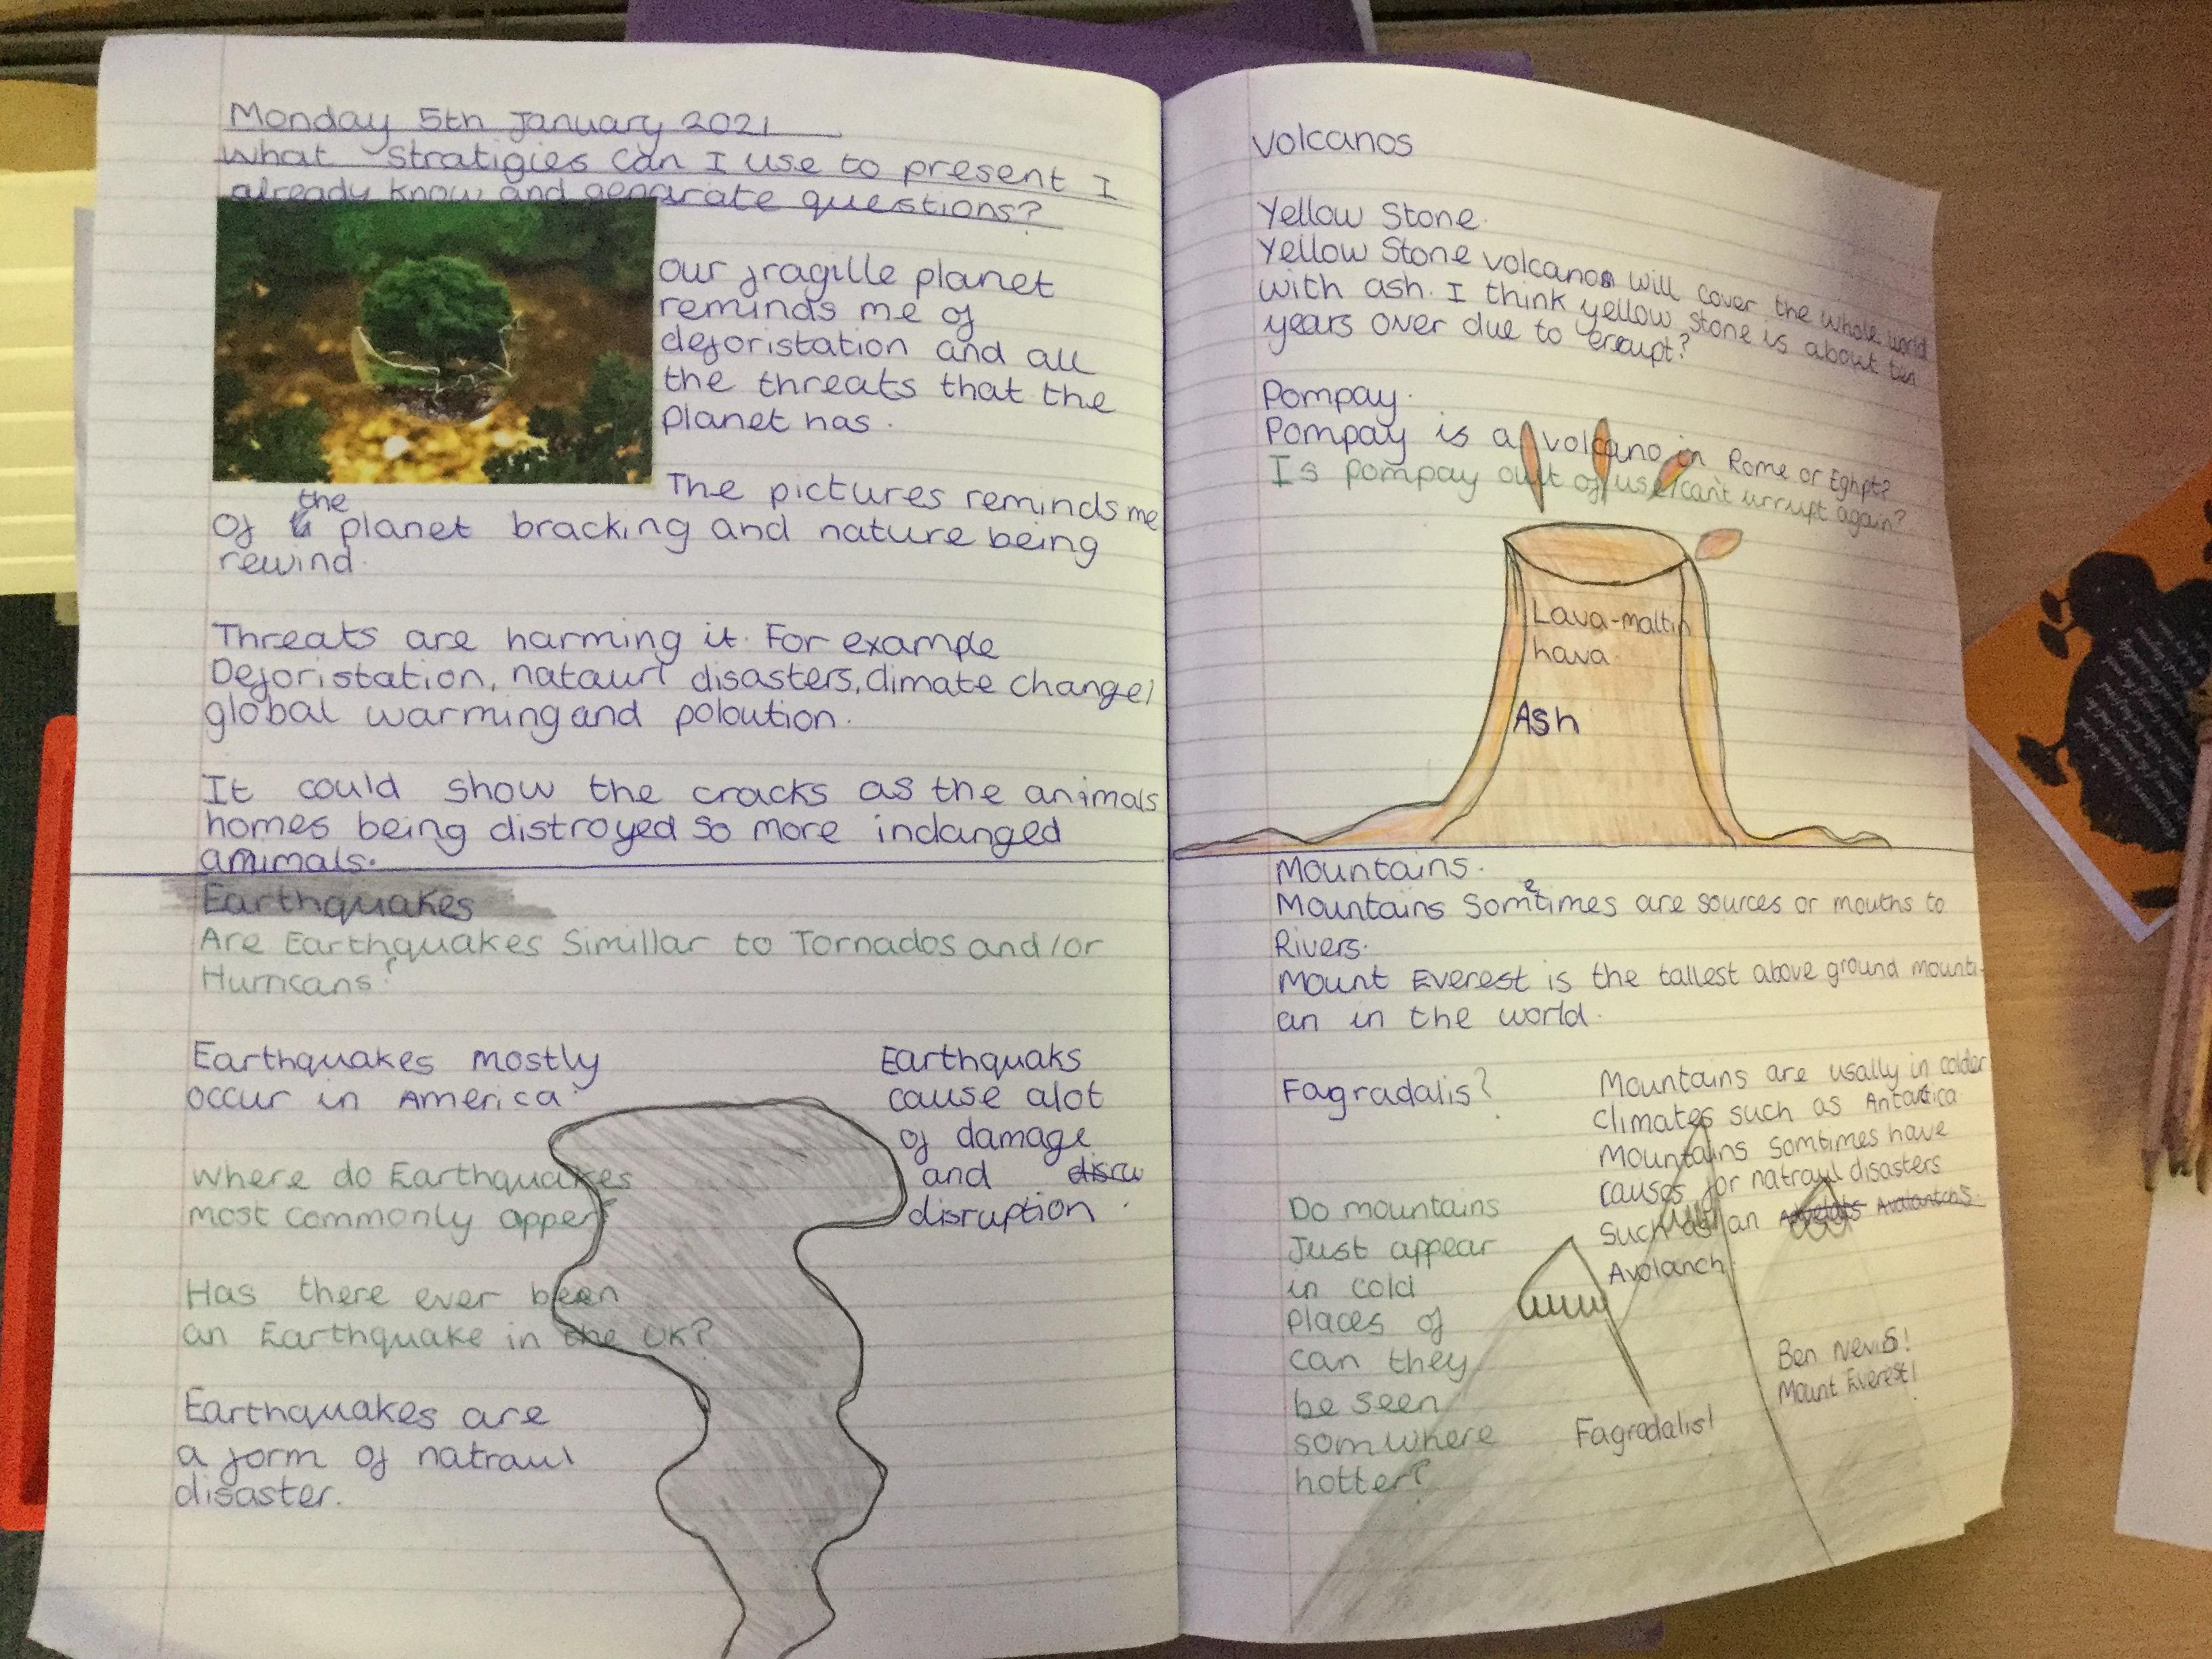 Monday 5th January 2021
What stratigies can I use to present I
already know and genarate questions?
Our fragille planet
reminds me of
deforistation and all
the threats that the
planet has.
The pictures reminds me
of the planet bracking and nature being
rewind.
Threats are harming it. For example
Deforistation, nataurl disasters, climate change/
global warming and poloution.
It could show the cracks as the animals
homes being distroyed so more indanged
animals.
Earthquakes
Are Earthquakes Simillar to Tornados and/or
Hurricans?
Earthquakes mostly
occur in America?
Earthquaks
cause alot
of damage
and disru
disruption.
Where do Earthquakes
most commonly apper?
Has there ever been
an Earthquake in the UK?
Earthquakes are
a form of natraul
disaster.
Volcanos
Yellow Stone.
Yellow Stone volcanos will cover the whole world
with ash. I think yellow stone is about ten
years over due to errupt?
Pompay.
Pompay is a volcano in Rome or Eghpt?
Is pompay out of use/can't urrupt again?
Lava-maltin
hava.
Ash
Mountains.
Mountains Sometimes are sources or mouths to
Rivers.
Mount Everest is the tallest above ground mounti-
an in the world.
Fagradalis?
Mountains are usally in colder
climates such as Antartica
Mountains Somtimes have
causes for natraul disasters
Such as an Avalantchs.
Avolanch.
Do mountains
Just appear
in cold
places of
can they
be seen
somwhere
hotter?
Ben Nevis!
Mount Everest!
Fagradalis!